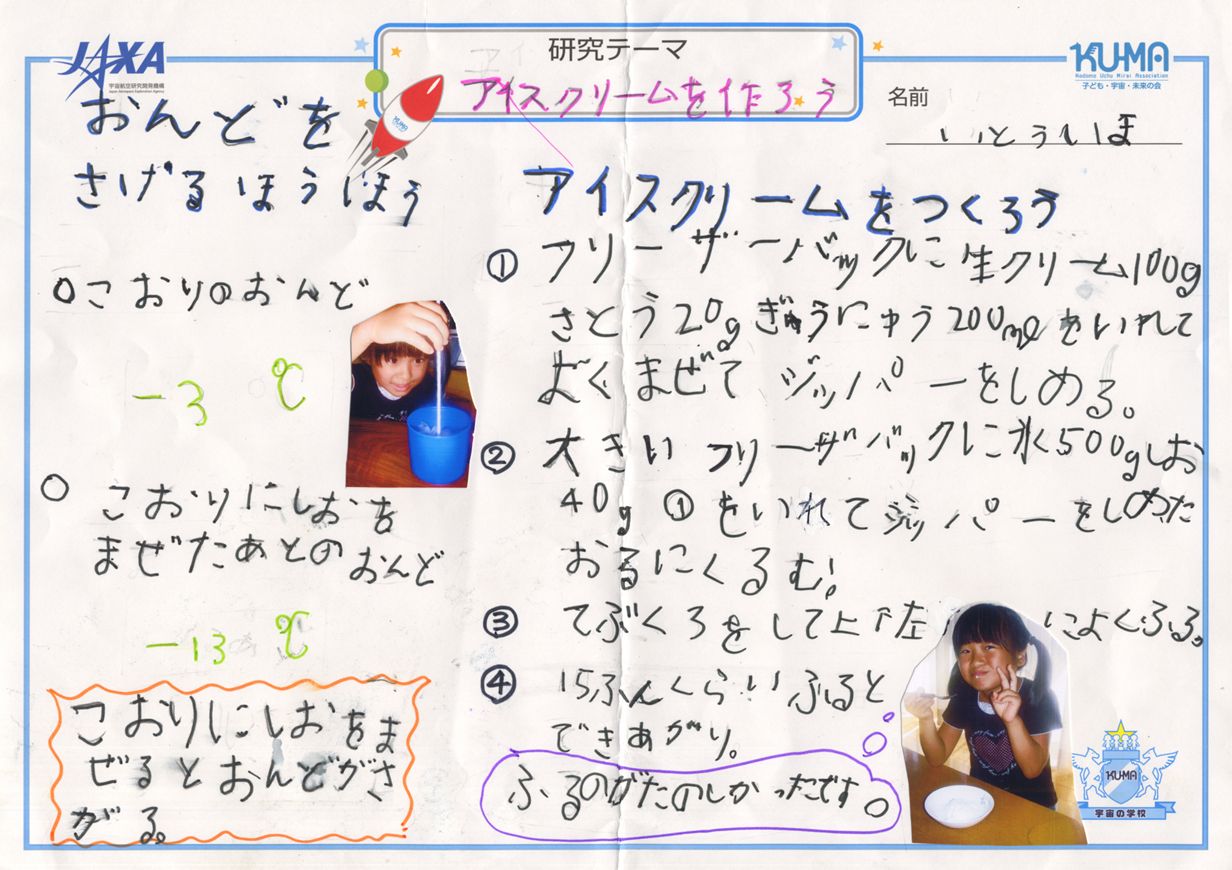 JAXA
宇宙航空研究開発機構
Japan Aerospace Exploration Agency
研究テーマ
アイスクリームを作ろう
KUMA
Kodomo Uchu Mirai Association
子ども・宇宙・未来の会
名前
いとういほ
おんどを
さげるほうほう
○こおりのおんど
-3 ℃
○こおりにしおを
まぜたあとのおんど
-13 ℃
こおりにしおをま
ぜるとおんどがさ
がる。
アイスクリームをつくろう
① フリーザーバックに生クリーム100g
さとう20gぎゅうにゅう200mlをいれて
よくまぜてジッパーをしめる。
② 大きいフリーザバックに氷500gしお
40g ①をいれてジッパーをしめたた
おるにくるむ!
③ てぶくろをして上下左によくふる。
④ 15ふんくらいふると
できあがり。
ふるのがたのしかったです。
KUMA
KUMA
宇宙の学校